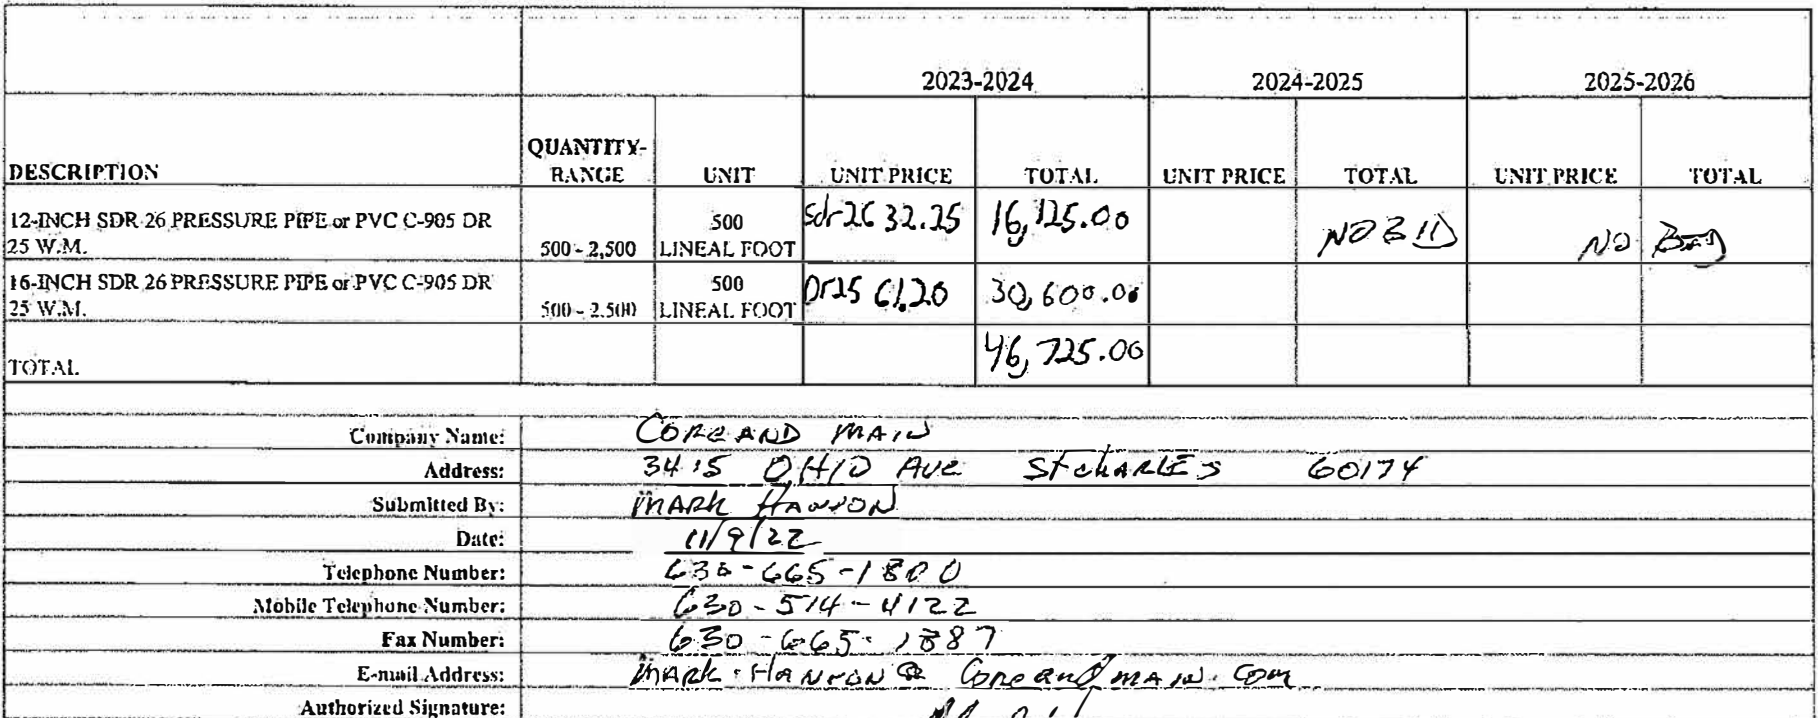 2023-2024 2024-2025 2025-2026
DESCRIPTION QUANTITY-RANGE UNIT UNIT PRICE TOTAL UNIT PRICE TOTAL UNIT PRICE TOTAL
12-INCH SDR 26 PRESSURE PIPE or PVC C-905 DR
25 W.M. 500 - 2,500 500 LINEAL FOOT sdr26 32.25 16,125.00 NO BID NO BID
16-INCH SDR 26 PRESSURE PIPE or PVC C-905 DR
25 W.M. 500 - 2,500 500 LINEAL FOOT Dr25 61.20 30,600.00
TOTAL 46,725.00
Company Name: CORE AND MAIN
Address: 3415 OHIO AVE St CHARLES 60174
Submitted By: MARK
Date: 11/9/22
Telephone Number: 630-665-1800
Mobile Telephone Number: 630-514-4122
Fax Number: 630-665-1887
E-mail Address:
Authorized Signature: